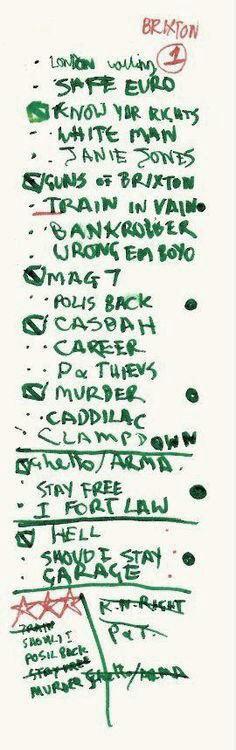 BRIXTON
1
LONDON calling
SAFE EURO
KNOW YOR RIGHTS
WHITE MAN
JANIE JONES
GUNS OF BRIXTON
TRAIN IN VAIN
BANKROBBER
WRONG EM BOYO
MAG 7
POLIS BACK
CASBAH
CAREER
P & THIEVS
MURDER
CADDILAC
CLAMPDOWN
Ghetto/ARMA
STAY FREE
I FORT LAW
HELL
SHOUD I STAY
GARAGE
TRAIN
SHOULD I
POSIL BACK
STAY FREE
MURDER
K.N.RIGHT
P&T.
Ghetto/ARMA